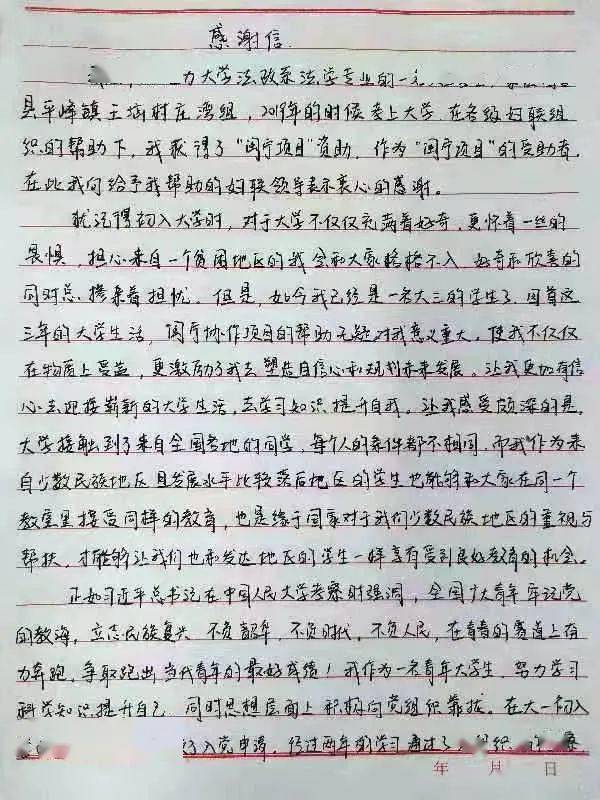 感谢信
力大学法政系法学专业的一名
县平峰镇王垴村庄湾组，2019年的时候考上大学，在各级妇联组
织的帮助下，我获得了“闽宁项目”资助，作为“闽宁项目”的受助者，
在此我向给予我帮助的妇联领导表示衷心的感谢。
就记得初入大学时，对于大学不仅仅充满着好奇，更怀着一丝的
畏惧，担心来自一个贫困地区的我会和大家格格不入，好奇和欣喜的
同时总掺杂着担忧。但是，如今我已经是一名大三的学生了，回首这
三年的大学生活，闽宁协作项目的帮助无疑对我意义重大，使我不仅仅
在物质上受益，更激励了我去塑造自信心和规划未来发展。让我更加有信
心去迎接崭新的大学生活，去学习知识提升自我。让我感受颇深的是，
大学接触到了来自全国各地的同学，每个人的条件都不相同，而我作为来
自少数民族地区且发展水平比较落后地区的学生也能够和大家在同一个
教室里接受同样的教育，也是缘于国家对于我们少数民族地区的重视与
帮扶，才能够让我们也和发达地区的学生一样享有受到良好教育的机会。
正如习近平总书记在中国人民大学考察时强调，全国广大青年牢记党
的教诲，立志民族复兴，不负韶华，不负时代，不负人民，在青春的赛道上奋
力奔跑，争取跑出当代青年的最好成绩！我作为一名青年大学生，努力学习
科学知识提升自己，同时思想层面上积极向党组织靠拢。在大一初入
了入党申请，经过两年的学习通过了
年 月 日